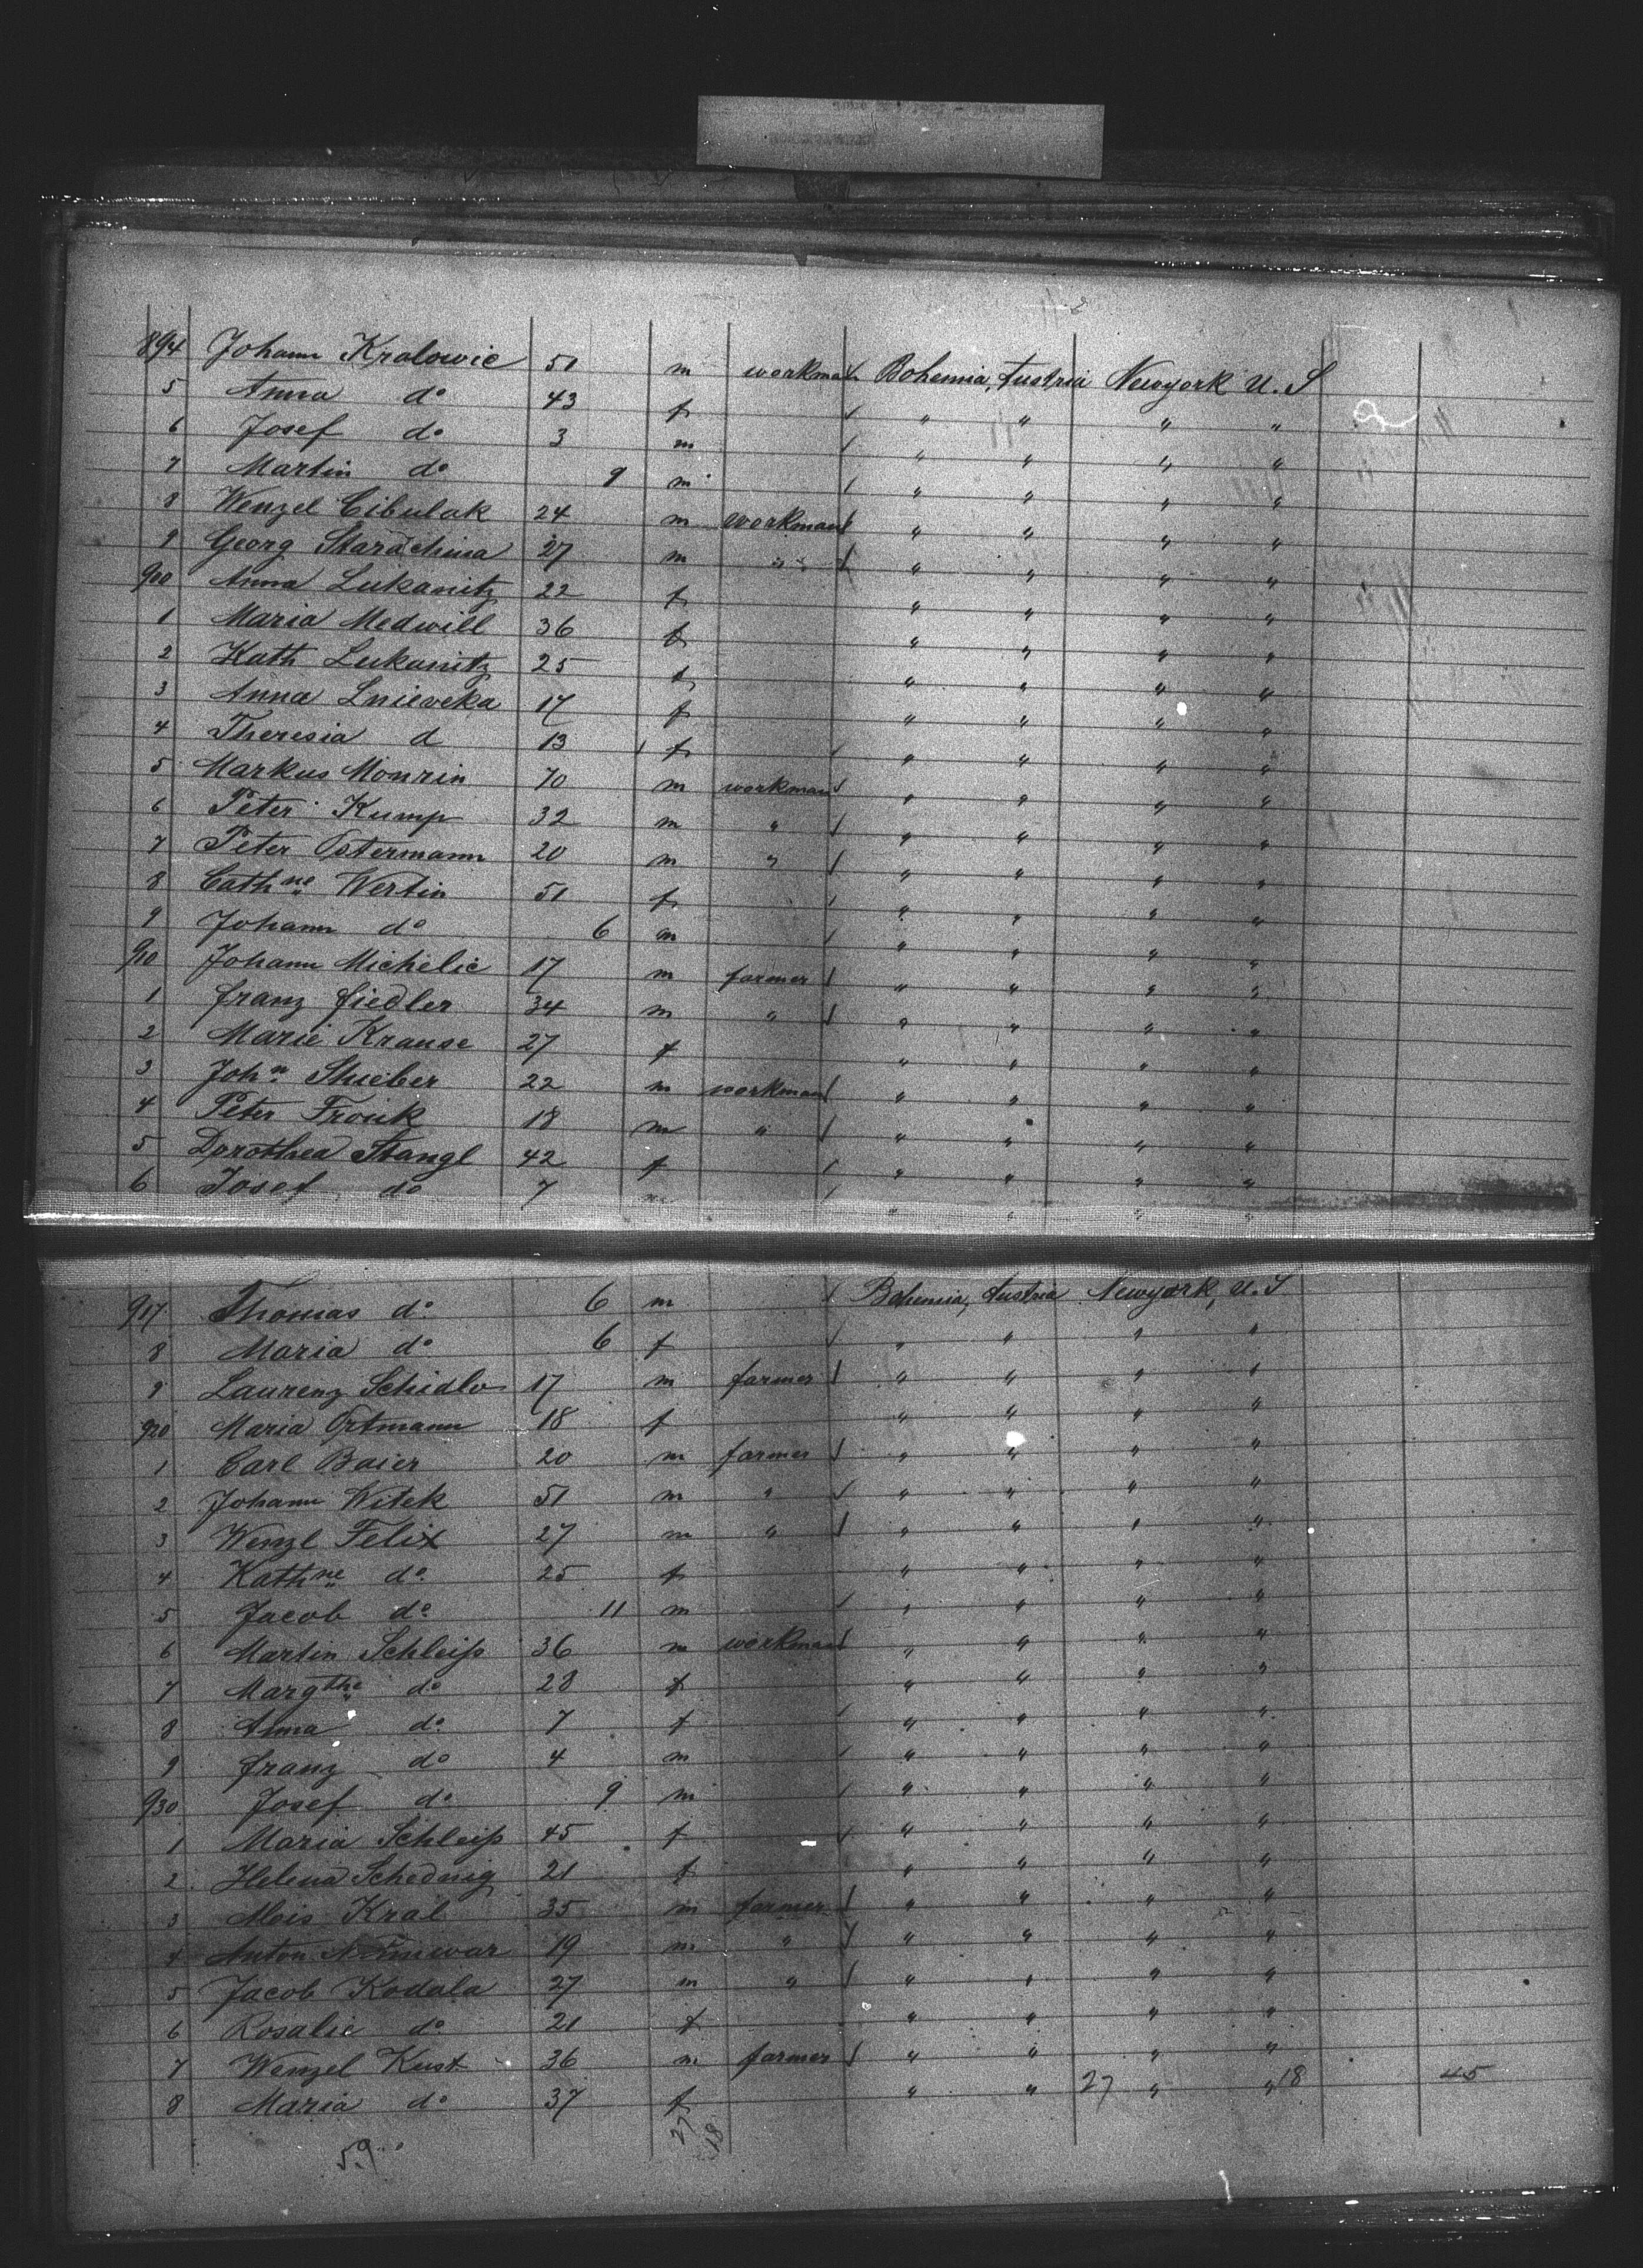 894 Johann Kralowic 51 m workman Bohemia, Austria Newyork U. S
5 Anna do 43 f " " " "
6 Josef do 3 m " " " "
7 Martin do 9 m " " " "
8 Wenzel Cibulak 24 m workman " " " "
9 Georg 27 m " " " " "
900 Anna Lukanitz 22 f " " " "
1 Maria Medwill 36 f " " " "
2 Kath Lukanitz 25 f " " " "
3 Anna 17 f " " " "
4 Theresia d 13 f " " " "
5 Markus 70 m workman " " " "
6 Peter Kump 32 m " " " " "
7 Peter Ostermann 20 m " " " " "
8 Cathne Wertin 51 f " " " "
9 Johann do 6 m " " " "
910 Johann Michelic 17 m farmer " " " "
1 Franz Fiedler 34 m " " " " "
2 Marie Krause 27 f " " " "
3 John Stieber 22 m workman " " " "
4 Peter 18 m " " " " "
5 Dorothea Stangl 42 f " " " "
6 Josef do 7 m " " " "
917 Thomas do 6 m Bohemia, Austria Newyork, U. S
8 Maria do 6 f " " " "
9 Laurenz Schidlo 17 m farmer " " " "
920 Maria Ortmann 18 f " " " "
1 Carl Baier 20 m farmer " " " "
2 Johann Witek 51 m " " " " "
3 Wenzl Felix 27 m " " " " "
4 Kathne do 25 f " " " "
5 Jacob do 11 m " " " "
6 Martin Schleiß 36 m workman " " " "
7 Margthe do 28 f " " " "
8 Anna do 7 f " " " "
9 Franz do 4 m " " " "
930 Josef do 9 m " " " "
1 Maria Schleiß 45 f " " " "
2 Helena Schednig 21 f " " " "
3 Alois Kral 35 m farmer " " " "
4 Anton 19 m " " " " "
5 Jacob Kodala 27 m " " " " "
6 Rosalie do 21 f " " " "
7 Wenzel Kust 36 m farmer " " " "
8 Maria do 37 f " " 27 " " 18 45
59 27 18